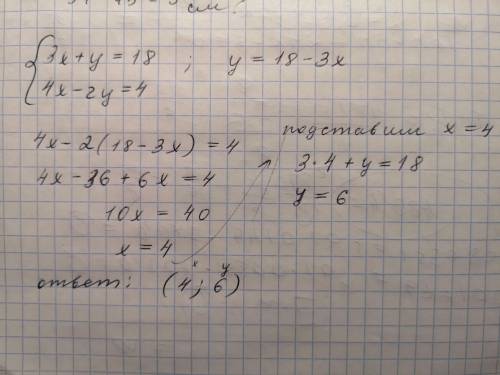 см?
3x + y = 18 ; y = 18 - 3x
4x - 2y = 4
4x - 2(18 - 3x) = 4
4x - 36 + 6x = 4
10x = 40
x = 4
подставим x = 4
3·4 + y = 18
y = 6
x y
ответ: (4; 6)